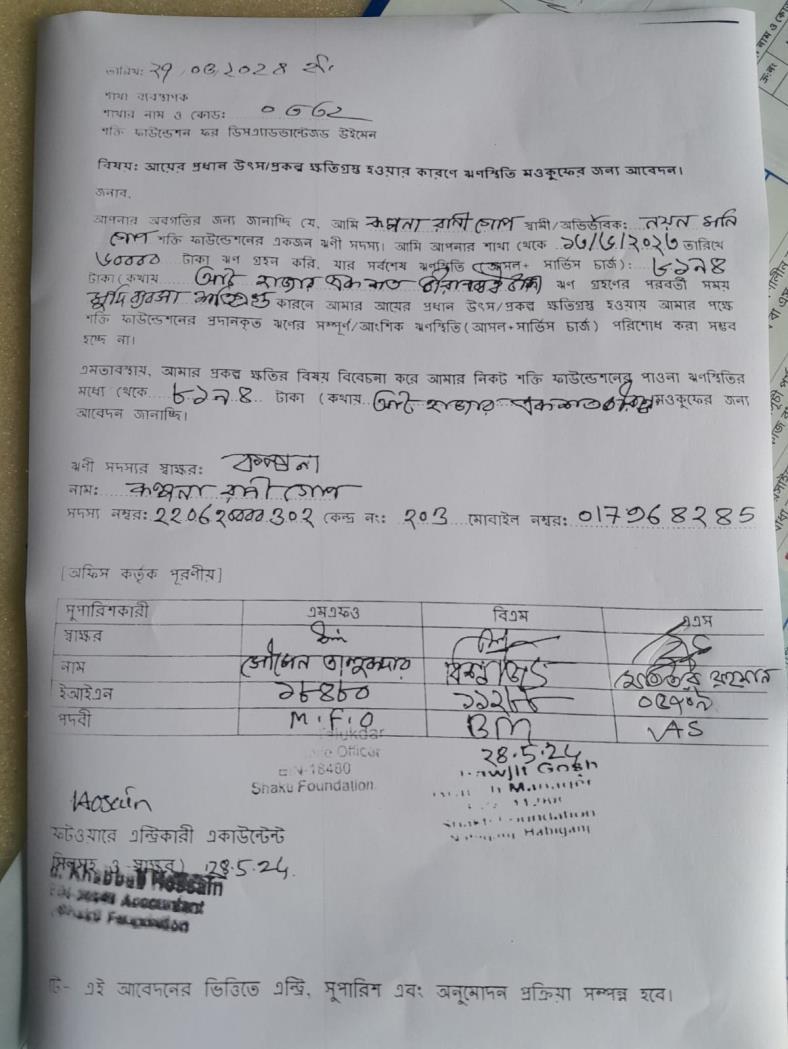 তারিখ: ২৭/০৫/২০২৪ ইং
শাখা ব্যবস্থাপক
শাখার নাম ও কোড: ০৩৬২
শক্তি ফাউন্ডেশন ফর ডিসএ্যাডভান্টেজড উইমেন
বিষয়: আয়ের প্রধান উৎস/প্রকল্প ক্ষতিগ্রস্থ হওয়ার কারণে ঋণস্থিতি মওকুফের জন্য আবেদন।
জনাব,
আপনার অবগতির জন্য জানাচ্ছি যে, আমি কল্পনা রানী গোপ স্বামী/অভিভাবক: নয়ন মনি
গোপ শক্তি ফাউন্ডেশনের একজন ঋণী সদস্য। আমি আপনার শাখা থেকে ১৩/৬/২০২৩ তারিখে
৬০০০০ টাকা ঋণ গ্রহন করি, যার সর্বশেষ ঋণস্থিতি (আসল+ সার্ভিস চার্জ): ৮১৯৪
টাকা (কথায় আট হাজার একশত চুরানব্বই টাকা) ঋণ গ্রহণের পরবর্তী সময়
মুদি ব্যবসা ক্ষতিগ্রস্ত কারনে আমার আয়ের প্রধান উৎস/প্রকল্প ক্ষতিগ্রস্থ হওয়ায় আমার পক্ষে
শক্তি ফাউন্ডেশনের প্রদানকৃত ঋণের সম্পূর্ণ/আংশিক ঋণস্থিতি (আসল+সার্ভিস চার্জ) পরিশোধ করা সম্ভব
হচ্ছে না।
এমতাবস্থায়, আমার প্রকল্প ক্ষতির বিষয় বিবেচনা করে আমার নিকট শক্তি ফাউন্ডেশনের পাওনা ঋণস্থিতির
মধ্যে থেকে ৮১৯৪ টাকা (কথায় আট হাজার একশত মওকুফের জন্য
আবেদন জানাচ্ছি।
ঋণী সদস্যর স্বাক্ষর: কল্পনা
নাম: কল্পনা রানী গোপ
সদস্য নম্বর: কেন্দ্র নং: ২০৩ মোবাইল নম্বর: 017968285
[অফিস কর্তৃক পূরণীয়]
সুপারিশকারী এমএফও বিএম এএস
স্বাক্ষর
নাম তালুকদার বিশ্বজিত মতিউর রহমান
ইআইএন ১৮৪৮০ ১১২৮৮
পদবী M.F.O BM AS
28.5.24
Officer
EIN-18480
Shakti Foundation
Habiganj
Hossain
ফটওয়ারে এন্ট্রিকারী একাউন্টেন্ট
স্বাক্ষর) 28.5.24.
Hossain
Accountant
Shakti Foundation
এই আবেদনের ভিত্তিতে এন্ট্রি, সুপারিশ এবং অনুমোদন প্রক্রিয়া সম্পন্ন হবে।